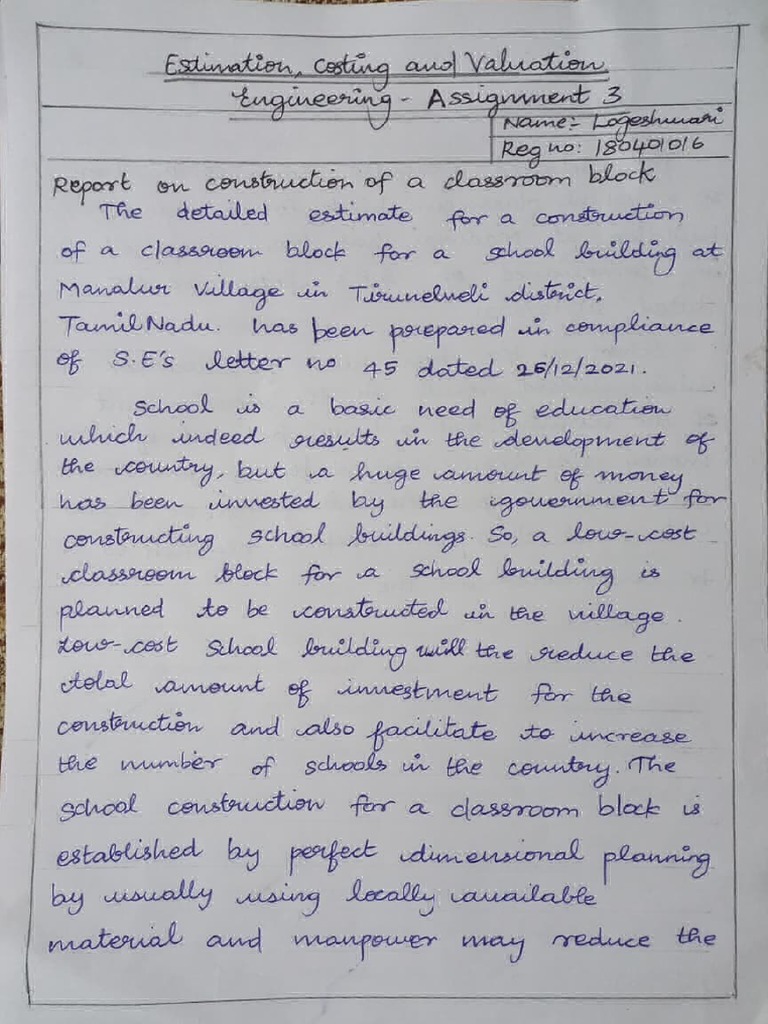 Estimation, Costing and Valuation
Engineering - Assignment 3
Name:- Logeshwari
Reg no: 180401016
Report on construction of a classroom block
The detailed estimate for a construction
of a classroom block for a school building at
Manalur Village in Tirunelveli district,
TamilNadu. has been prepared in compliance
of S.E's letter no 45 dated 26/12/2021.
School is a basic need of education
which indeed results in the development of
the country, but a huge amount of money
has been invested by the government for
constructing school buildings. So, a low-cost
classroom block for a school building is
planned to be constructed in the village.
Low-cost school building will the reduce the
total amount of investment for the
construction and also facilitate to increase
the number of schools in the country. The
school construction for a classroom block is
established by perfect dimensional planning
by usually using locally available
material and manpower may reduce the